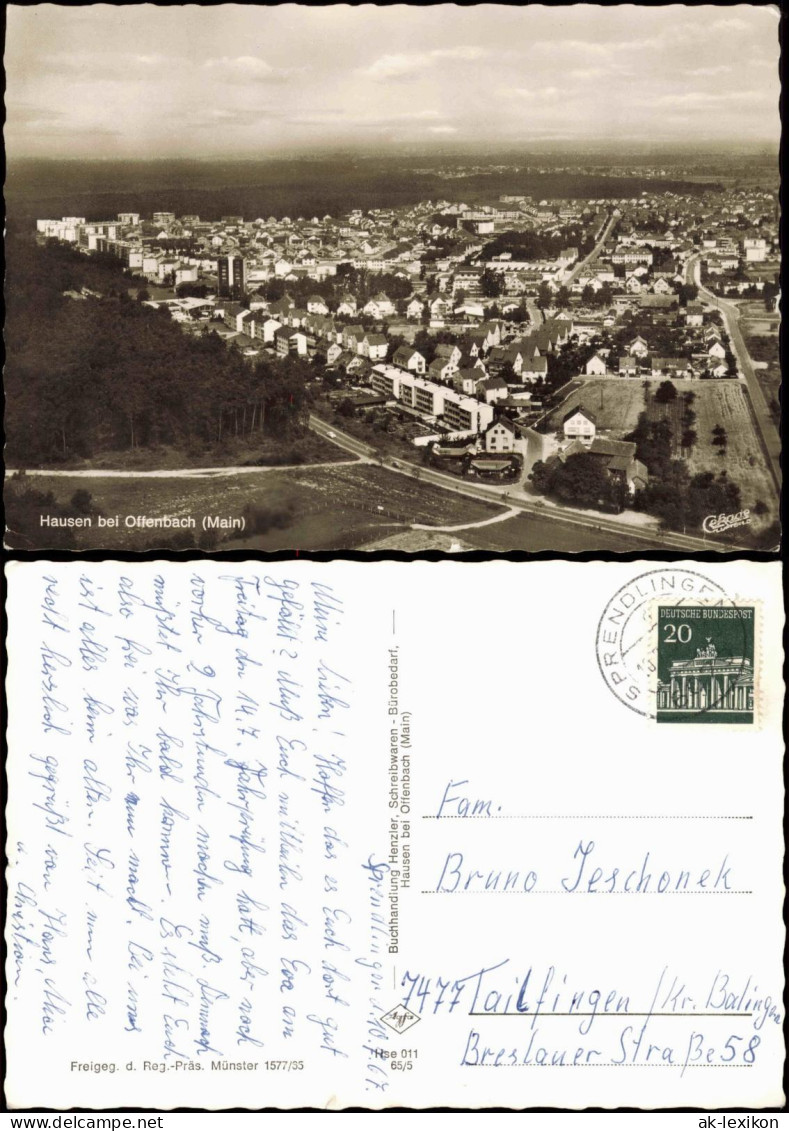 Hausen bei Offenbach (Main)
Cekade
SPRENDLINGEN
DEUTSCHE BUNDESPOST
20
Sprendlingen d. 10.7.67.
Meine Lieben! Hoffen das es Euch dort gut
gefällt? Muß Euch mitteilen das Eva am
Freitag den 14.7. Fahrprüfung hatt, aber noch
vorher 2 Fahrstunden machen muß. Demnach
müßtet Ihr bald kommen. Es steht Euch
also frei was Ihr nun macht. Bei uns
ist alles beim alten. Seit nun alle
recht herzlich gegrüßt von Hans,
u. Christian.
Buchhandlung Henzler, Schreibwaren - Bürobedarf,
Hausen bei Offenbach (Main)
Fam.
Bruno Jeschonek
7477 Tailfingen /Kr. Balingen
Breslauer Straße 58
Freigeg. d. Reg.-Präs. Münster 1577/65
Hse 011
65/5
ak-lexikon.com